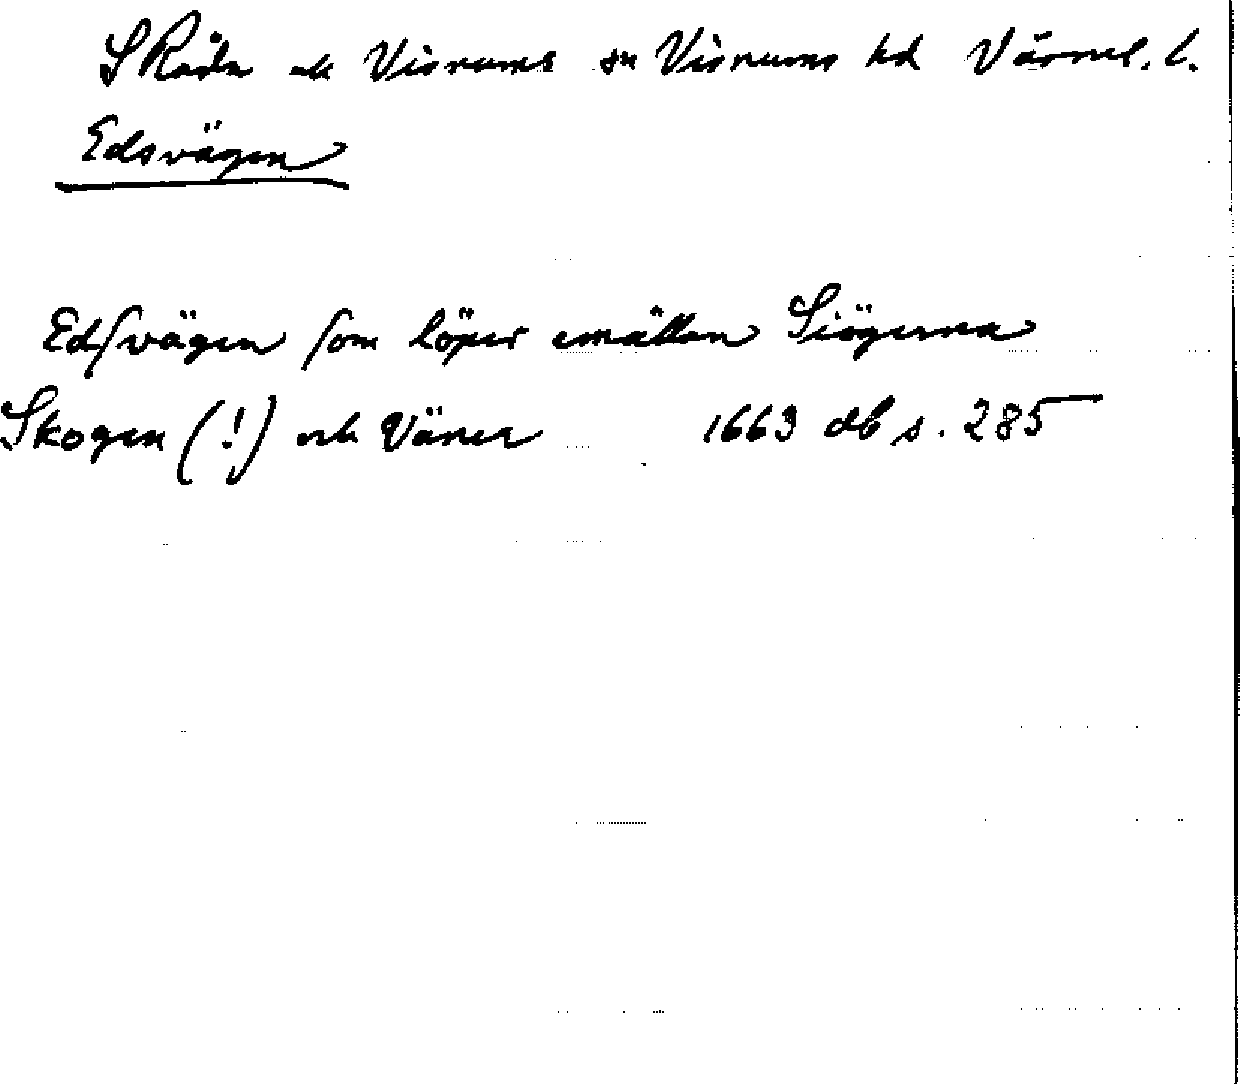 S Råda och Visnums sn Visnums hd Värml. l.
Edsvägen
Edſvägen ſom löper emällan Siögerna
Skogen (!) och Väner 1663 db s. 285